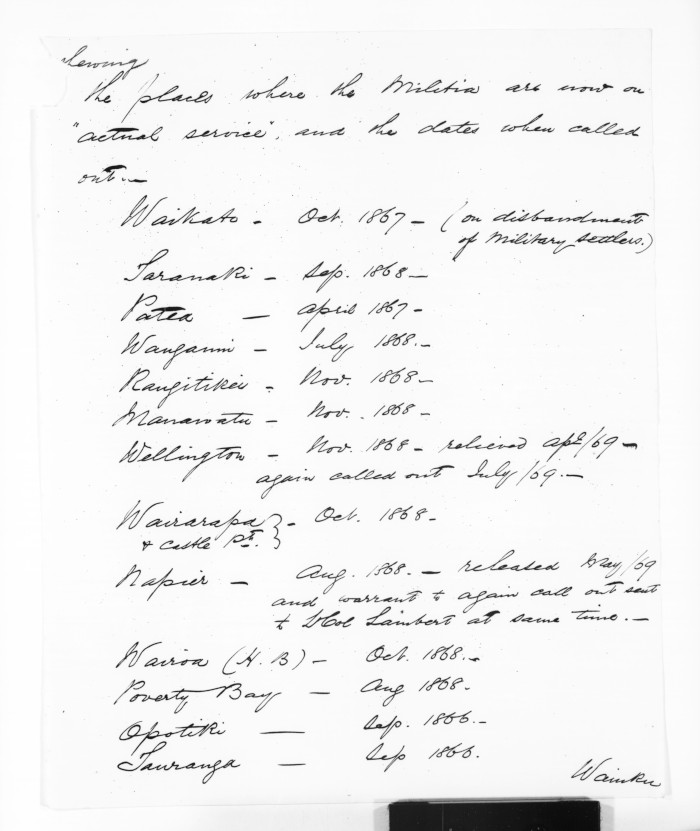 shewing
the places where the Militia are now on
"actual service", and the dates when called
out.—
Waikato - Oct. 1867 - (on disbandment
of Military Settlers.)
Taranaki - Sep. 1868 —
Patea — April 1867 -
Wanganui - July 1868. -
Rangitikei - Nov. 1868 -
Manawatu - Nov. 1868 -
Wellington - Nov. 1868 - relieved apl/69 -
again called out July/69. -
Wairarapa } - Oct. 1868 -
& Castle Pt. }
Napier - Aug. 1868. — released May/69
and warrant to again call out sent
to Lt Col Lambert at same time. —
Wairoa (H. B) - Oct. 1868. -
Poverty Bay — Aug 1868.
Opotiki — Sep. 1866. -
Tauranga — Sep 1866.
Waiuku